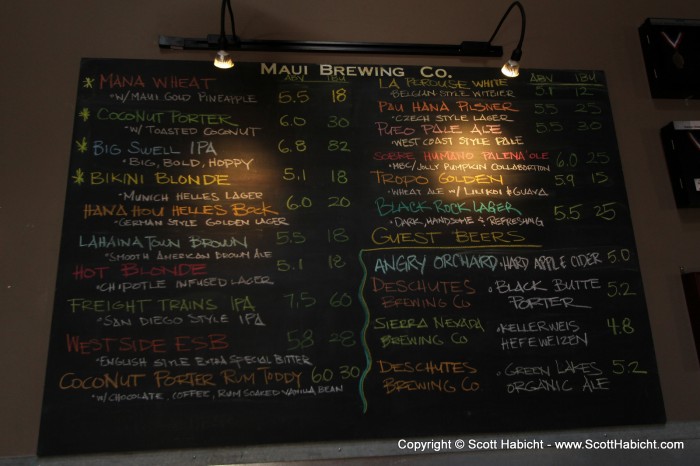 MAUI BREWING CO.
ABV IBU
MANA WHEAT 5.5 18
• W/ MAUI GOLD PINEAPPLE
* COCONUT PORTER 6.0 30
• W/ TOASTED COCONUT
* BIG SWELL IPA 6.8 82
• BIG, BOLD, HOPPY
* BIKINI BLONDE 5.1 18
• MUNICH HELLES LAGER
HANA HOU HELLES BOCK 6.0 20
• GERMAN STYLE GOLDEN LAGER
LAHAINA TOWN BROWN 5.5 18
• SMOOTH AMERICAN BROWN ALE
HOT BLONDE 5.1 18
• CHIPOTLE INFUSED LAGER
FREIGHT TRAINS IPA 7.5 60
• SAN DIEGO STYLE IPA
WEST SIDE ESB 5.8 28
• ENGLISH STYLE EXTRA SPECIAL BITTER
COCONUT PORTER RUM TODDY 6.0 30
• W/ CHOCOLATE, COFFEE, RUM SOAKED VANILLA BEAN
ABV IBU
LA PEROUSE WHITE 5.1 12
• BELGIAN STYLE WITBIER
PAU HANA PILSNER 5.5 25
• CZECH STYLE LAGER
PUEO PALE ALE 5.5 30
• WEST COAST STYLE PALE
SOBRE HUMANO PALENA'OLE 6.0 25
• MBC/JOLLY PUMPKIN COLLABORTION
TROPO GOLDEN 5.9 15
• WHEAT ALE W/ LILIKOI & GUAVA
BLACK ROCK LAGER 5.5 25
• DARK, HANDSOME & REFRESHING
GUEST BEERS
ANGRY ORCHARD • HARD APPLE CIDER 5.0
DESCHUTES • BLACK BUTTE 5.2
BREWING CO PORTER
SIERRA NEVADA • KELLERWEIS 4.8
BREWING CO HEFEWEIZEN
DESCHUTES • GREEN LAKES 5.2
BREWING CO ORGANIC ALE
Copyright © Scott Habicht - www.ScottHabicht.com